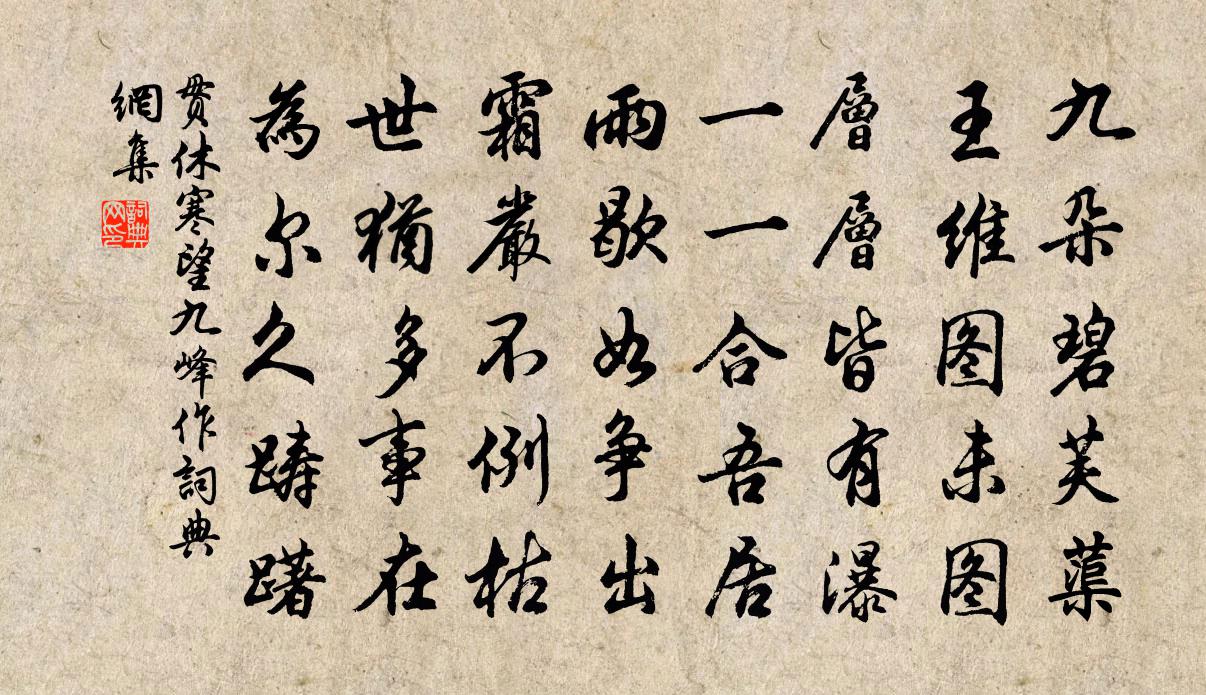 九朵碧芙蕖
王维图未图
層層皆有瀑
一一合吾居
雨歇如争出
霜嚴不例枯
世猶多事在
為尔久躊躇
贯休寒望九峰作詞典
網集
詞典
网印